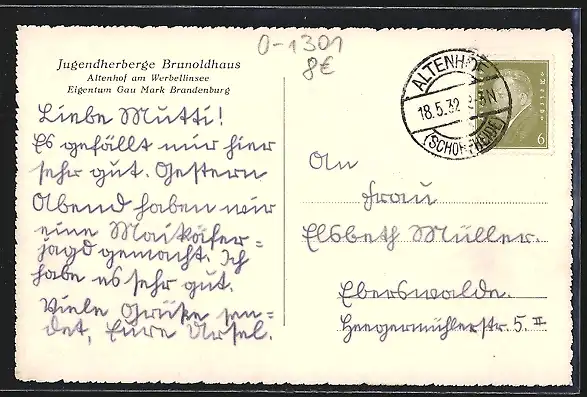 O-1301
8€
Jugendherberge Brunoldhaus
Altenhof am Werbellinsee
Eigentum Gau Mark Brandenburg
Liebe Mutti!
Es gefällt mir hier
sehr gut. Gestern
Abend haben wir
eine Maikäfer=
jagd gemacht. Ich
habe es sehr gut.
Viele Grüße sen=
det, Eure Ursel.
ALTENHOF
18.5.32
(SCHORFHEIDE)
6
An
Frau
Elsbeth Müller.
Eberswalde.
Heegermühlerstr. 5. II